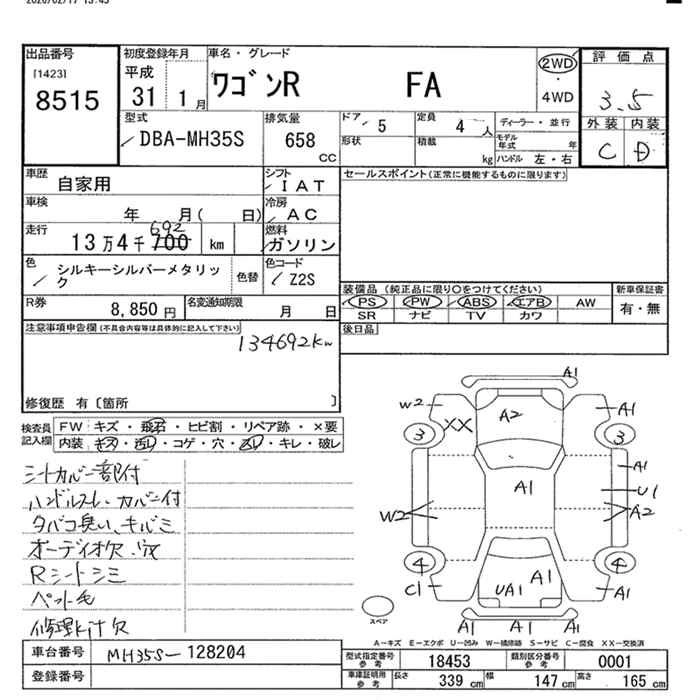 2020/02/17 13:45
出品番号
[1423]
8515
初度登録年月
平成
31 1月
車名・グレード
ワゴンR FA
2WD
・
4WD
評価点
3.5
外装 内装
C D
型式
DBA-MH35S
排気量
658
CC
ドア 5
定員 4 人
ディーラー・並行
形状
積載 kg
モデル年式 年
ハンドル 左・右
車歴
自家用
シフト
IAT
セールスポイント(正常に機能するものに限ります)
車検
年 月( 日)
冷房
AC
走行
13万4千700 km
692
燃料
ガソリン
色
シルキーシルバーメタリック
色替
色コード
Z2S
装備品 (純正品に限り○をつけてください)
PS PW ABS エアB AW
SR ナビ TV カワ
新車保証書
有・無
R券
8,850円
名変通知期限
月 日
後日品
注意事項申告欄(不具合内容等は具体的に記入して下さい)
134692km
修復歴 有〔箇所 〕
検査員記入欄
FW キズ・飛石・ヒビ割・リペア跡・×要
内装 キズ・汚レ・コゲ・穴・スレ・キレ・破レ
シートカバー一部付
ハンドルスレ、カバー付
タバコ臭い、キルミ
オーディオ欠、穴
Rシートシミ
ペット毛
A1
W2
XX
A2
A1
3
3
A1
A1
U1
W2
A2
4
4
C1
UA1
A1
A1
A1
A1
A1
スペア
A-キズ E-エクボ U-凹み W-補修跡 S-サビ C-腐食 XX-交換済
車台番号
MH35S-128204
登録番号
型式指定番号
参考
18453
類別区分番号
参考
0001
車庫証明用
参考
長さ 339 cm
幅 147 cm
高さ 165 cm